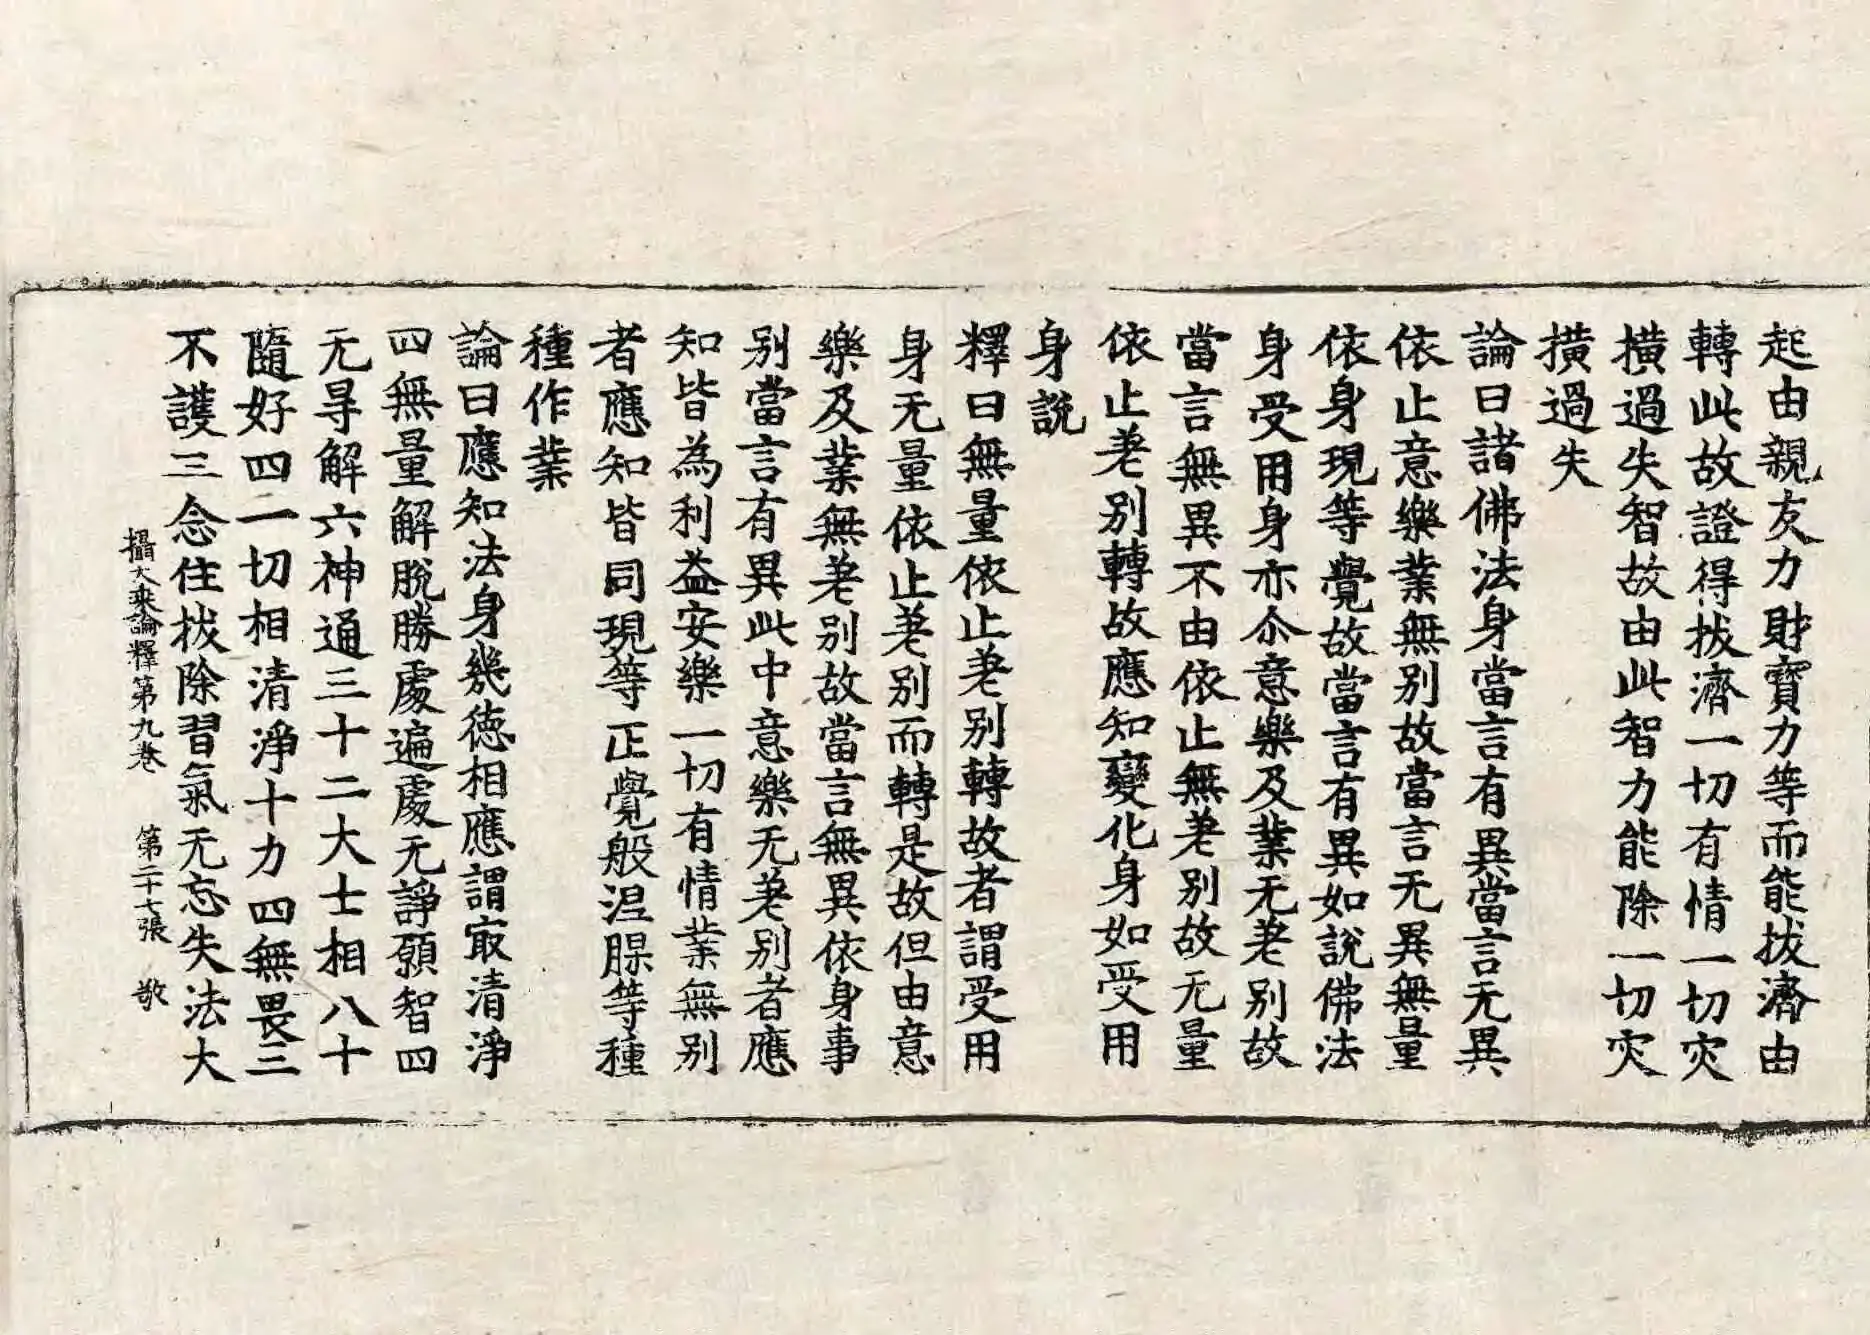 起由親友力財寶力等而能拔濟由
轉此故證得拔濟一切有情一切灾
橫過失智故由此智力能除一切灾
橫過失
論曰諸佛法身當言有異當言无異
依止意樂業無別故當言无異無量
依身現等覺故當言有異如說佛法
身受用身亦尒意樂及業无差別故
當言無異不由依止無差別故无量
依止差別轉故應知變化身如受用
身說
釋曰無量依止差別轉故者謂受用
身无量依止差別而轉是故但由意
樂及業無差別故當言無異依身事
別當言有異此中意樂无差別者應
知皆為利益安樂一切有情業無別
者應知皆同現等正覺般涅槃等種
種作業
論曰應知法身幾德相應謂㝡清淨
四無量解脫勝處遍處无諍願智四
无㝵解六神通三十二大士相八十
隨好四一切相清淨十力四無畏三
不護三念住拔除習氣无忘失法大
攝大乘論釋第九卷 第二十七張 敬